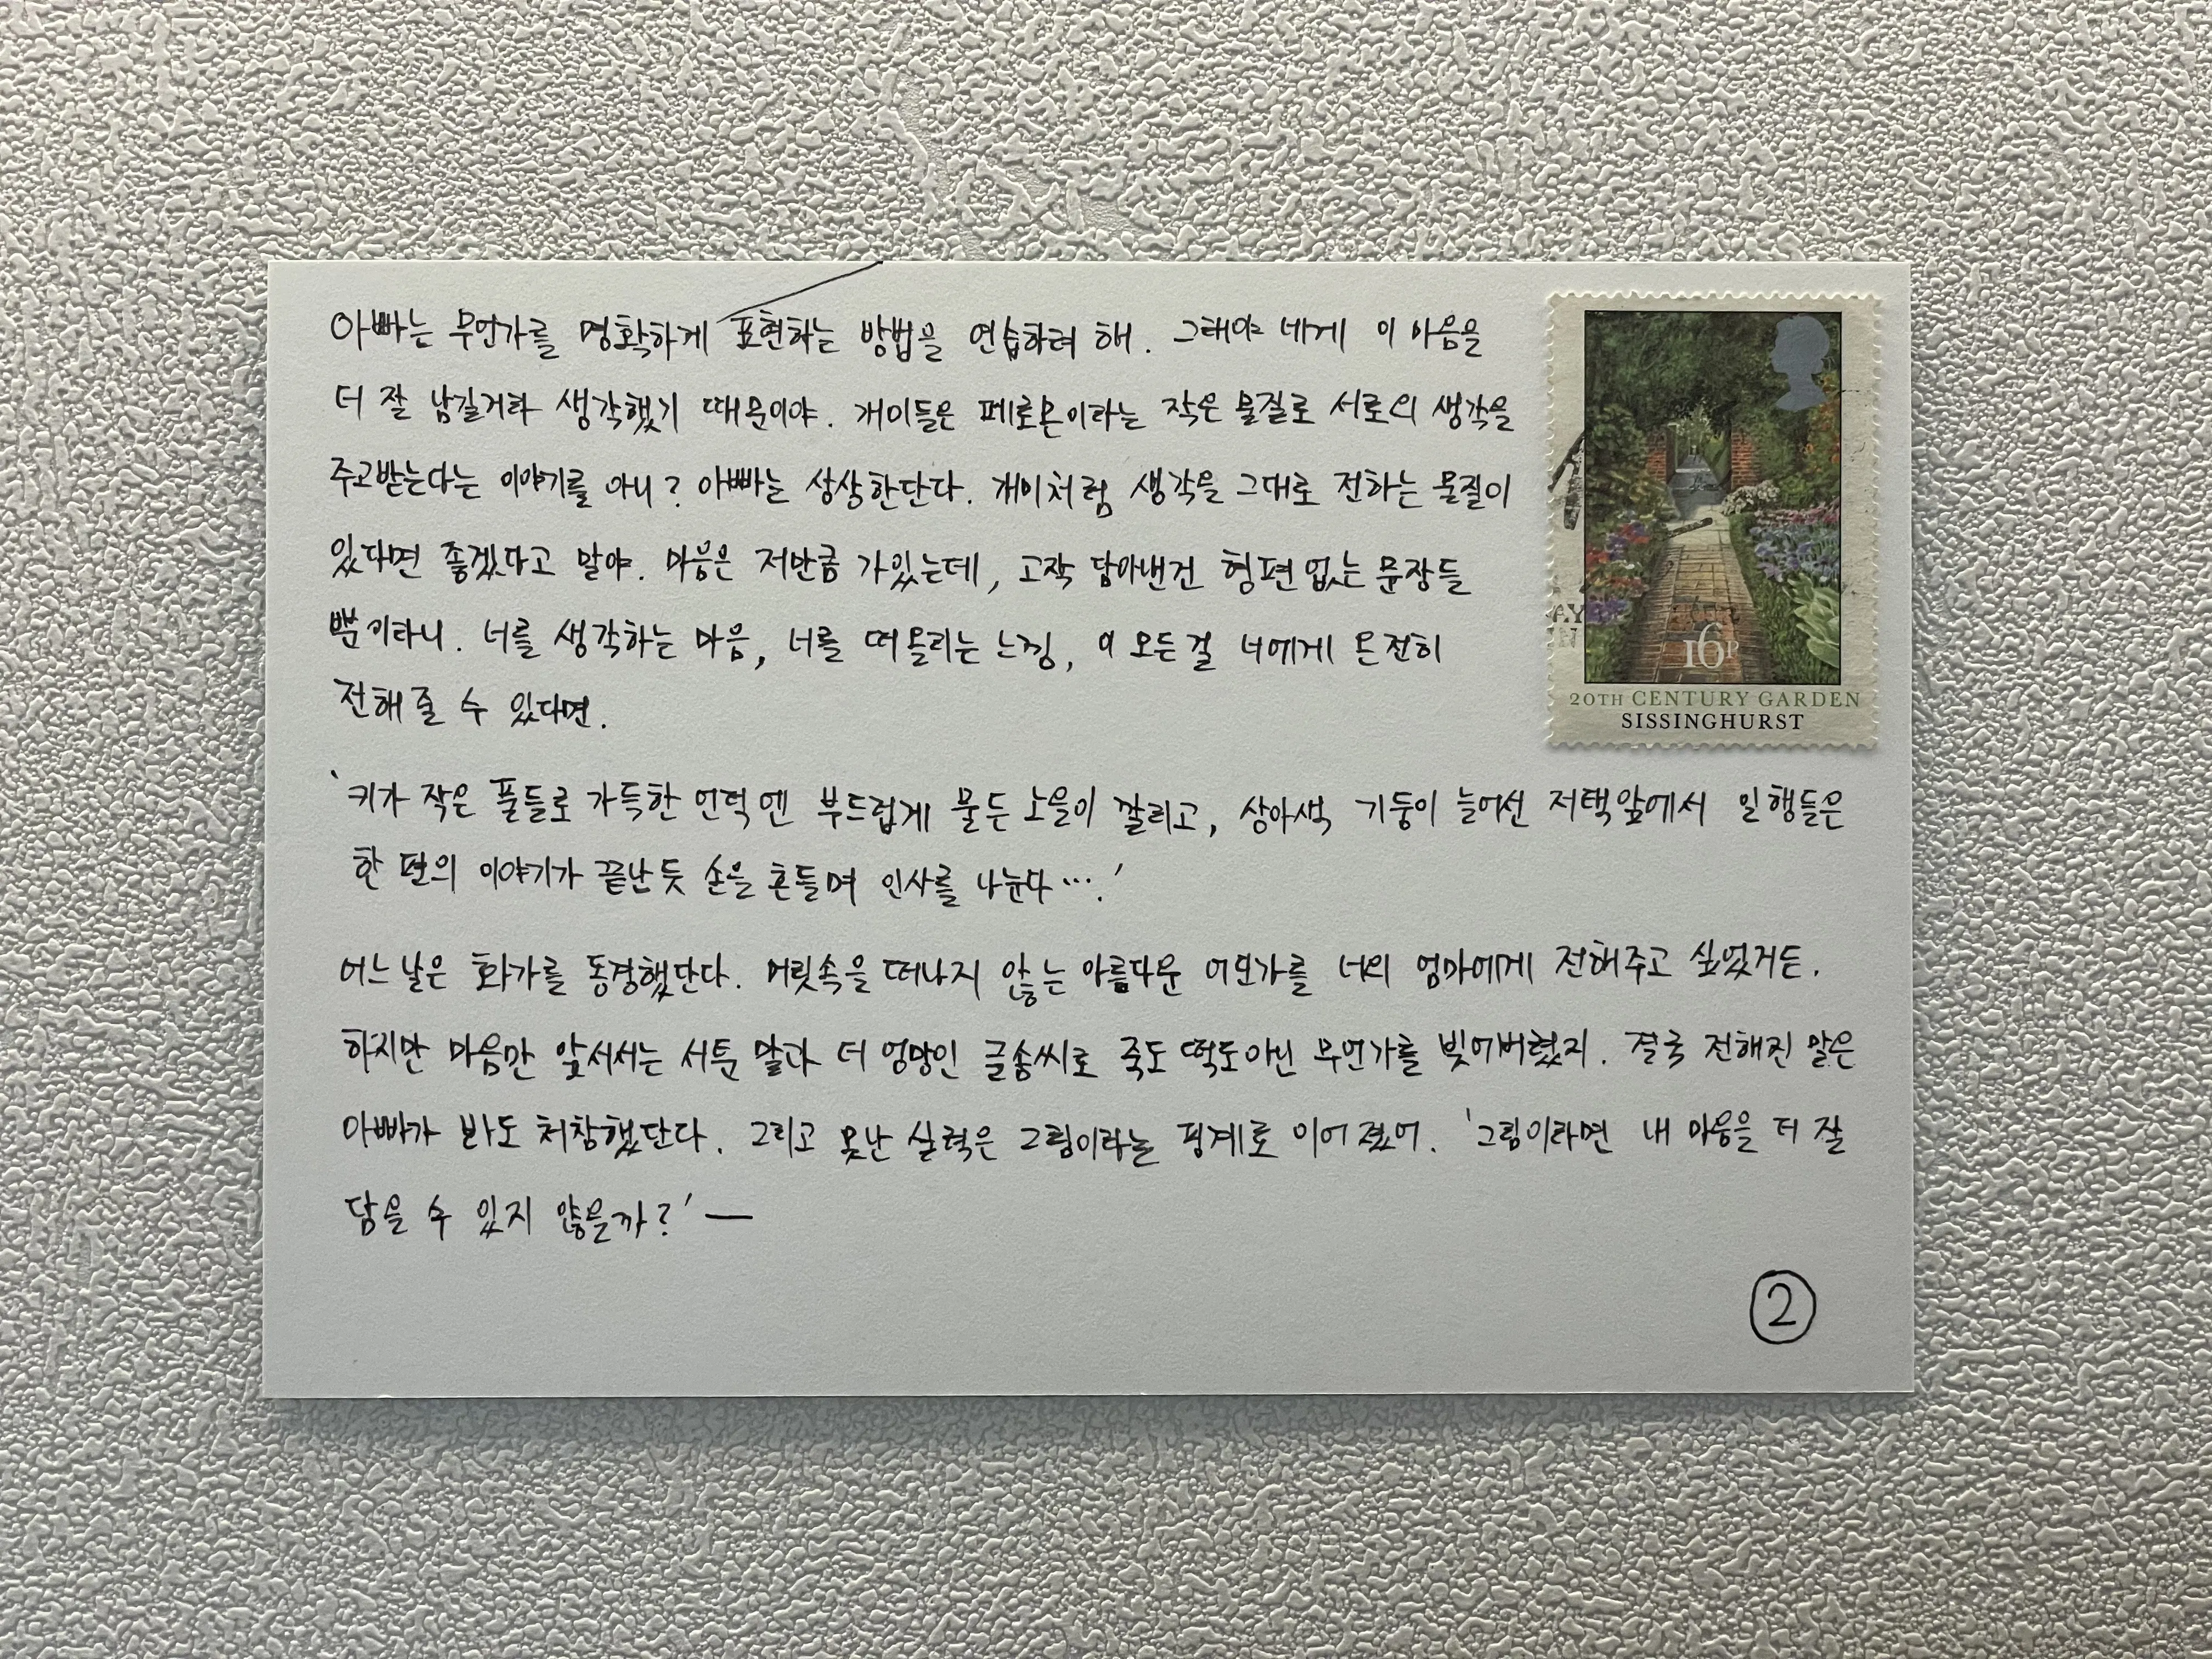 아빠는 무언가를 명확하게 표현하는 방법을 연습하려 해. 그래야 네게 이 마음을
더 잘 남길거라 생각했기 때문이야. 개미들은 페로몬이라는 작은 물질로 서로의 생각을
주고받는다는 이야기를 아니? 아빠는 상상한단다. 개미처럼 생각을 그대로 전하는 물질이
있다면 좋겠다고 말야. 마음은 저만큼 가있는데, 고작 담아낸건 형편없는 문장들
뿐이라니. 너를 생각하는 마음, 너를 떠올리는 느낌, 이 모든걸 너에게 온전히
전해줄 수 있다면.
'키가 작은 풀들로 가득한 언덕엔 부드럽게 물든 노을이 깔리고, 상아색 기둥이 늘어선 저택앞에서 일행들은
한 편의 이야기가 끝난듯 손을 흔들며 인사를 나눈다….'
어느날은 화가를 동경했단다. 머릿속을 떠나지 않는 아름다운 어딘가를 너의 엄마에게 전해주고 싶었거든.
하지만 마음만 앞서서는 서툰 말과 더 엉망인 글솜씨로 죽도 떡도아닌 무언가를 빚어버렸지. 결국 전해진 말은
아빠가 봐도 처참했단다. 그리고 못난 실력은 그림이라는 핑계로 이어졌어. '그림이라면 내 마음을 더 잘
담을 수 있지 않을까?' —
②
16P
20TH CENTURY GARDEN
SISSINGHURST